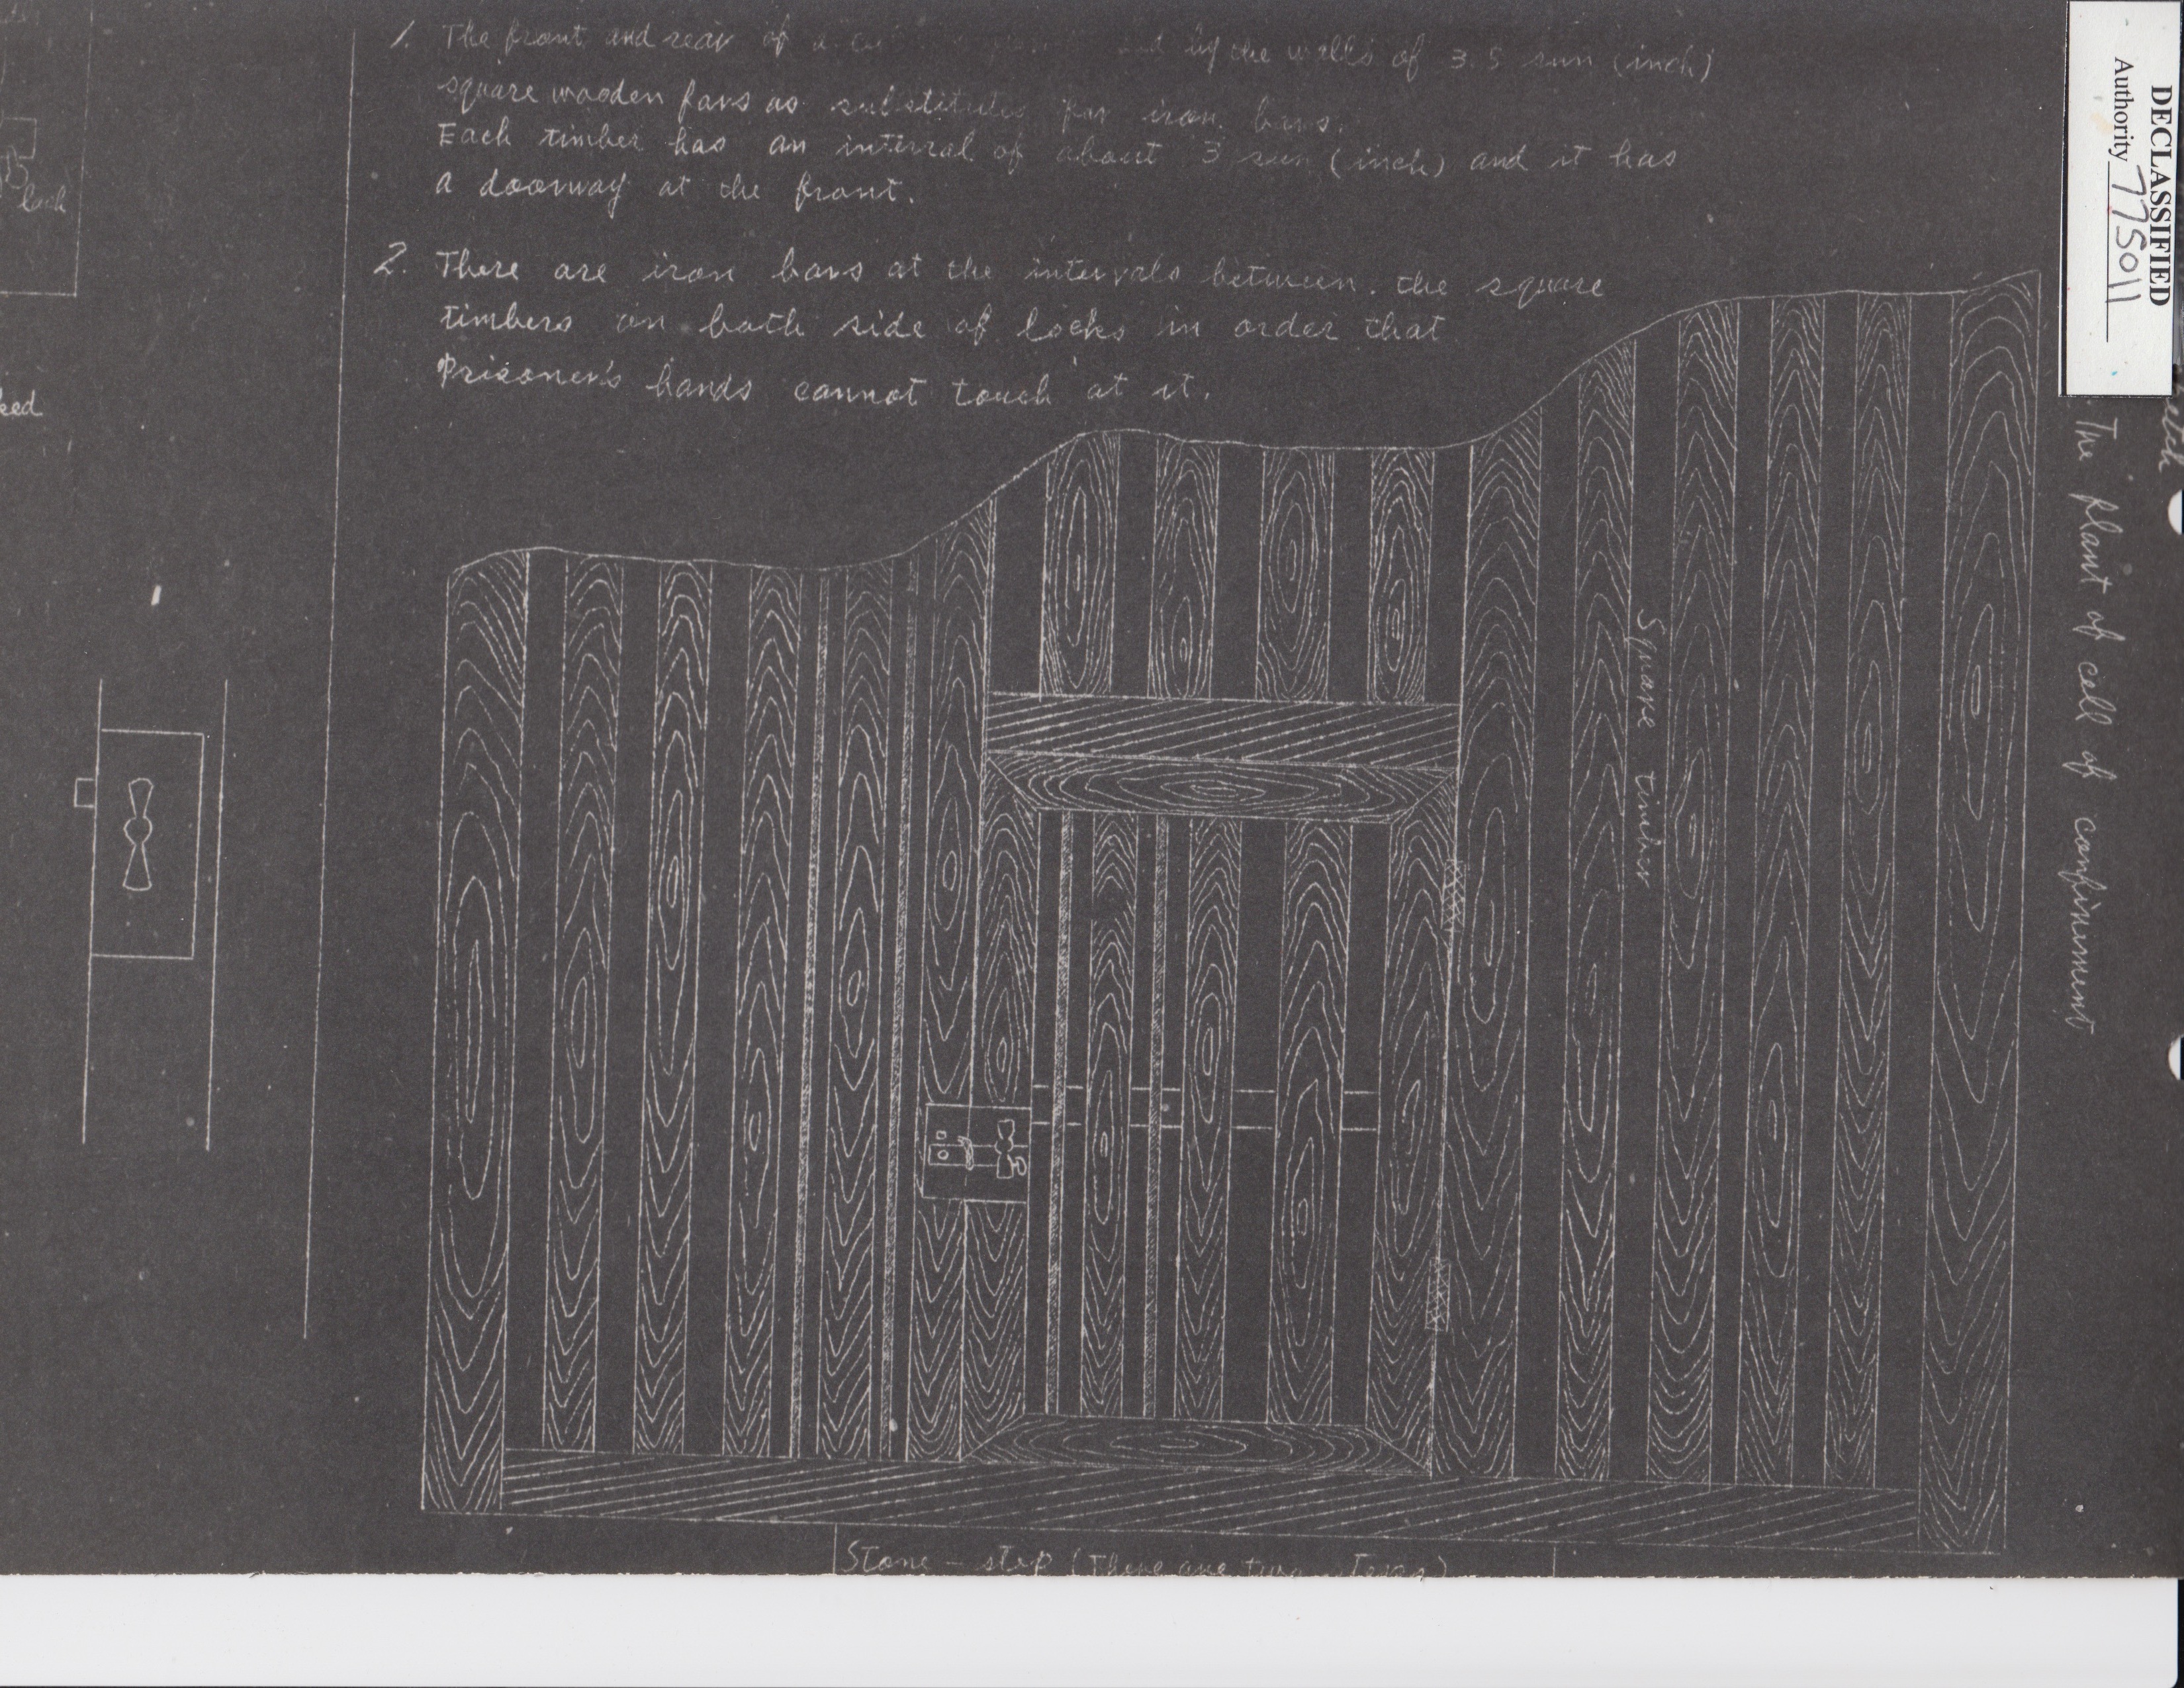 1. The front and rear of a by the walls of 3.5 sun (inch)
square wooden favs as substitutes for iron bars.
Each timber has an interval of about 3 sun (inch) and it has
a doorway at the front.
2. There are iron bars at the intervals between. the square
timbers on both side of locks in order that
Prisoner's hands cannot touch at it.
lock
ked
Square timber
The plant of cell of confinement
DECLASSIFIED
Authority 775011
Stone - step (There are two steps)